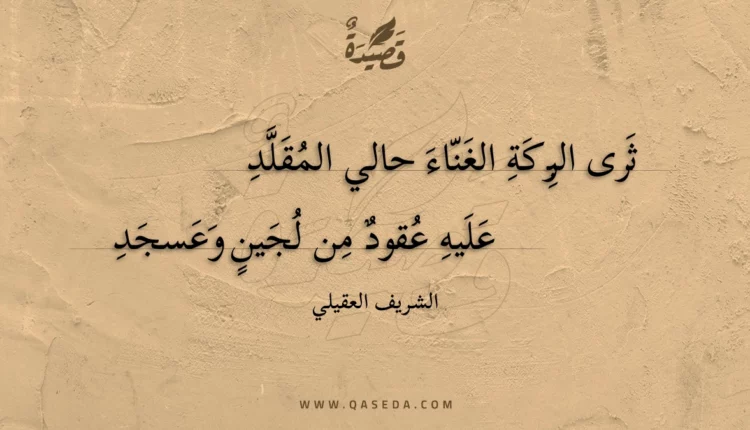 قَصيدَةٌ
ثَرى البِركَةِ الغَنّاءَ حالي المُقَلَّدِ
عَلَيهِ عُقودٌ مِن لُجَينٍ وَعَسجَدِ
الشريف العقيلي
WWW.QASEDA.COM